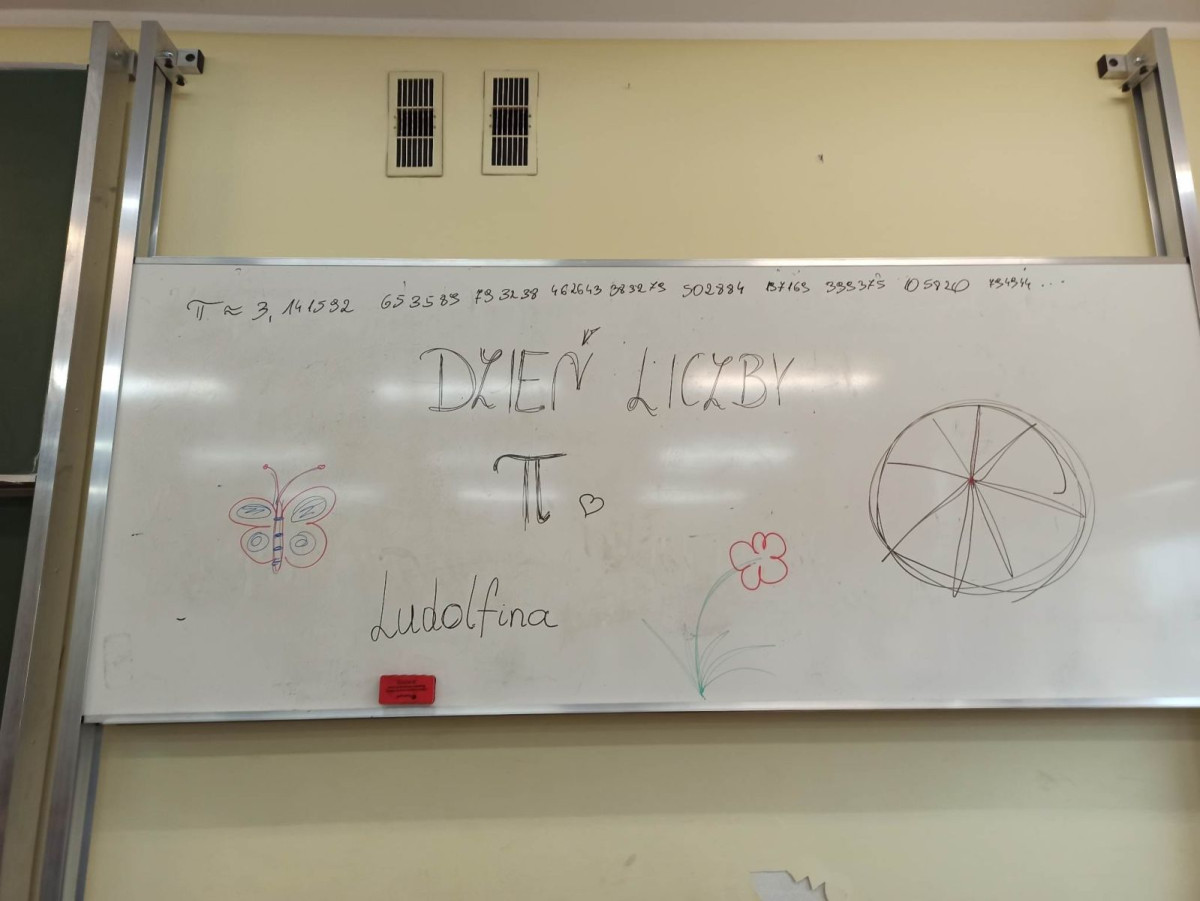 π ≈ 3, 141592 653589 793238 462643 383279 502884 197169 399375 105820 794944 ...
DZIEŃ LICZBY
π ♡
Ludolfina